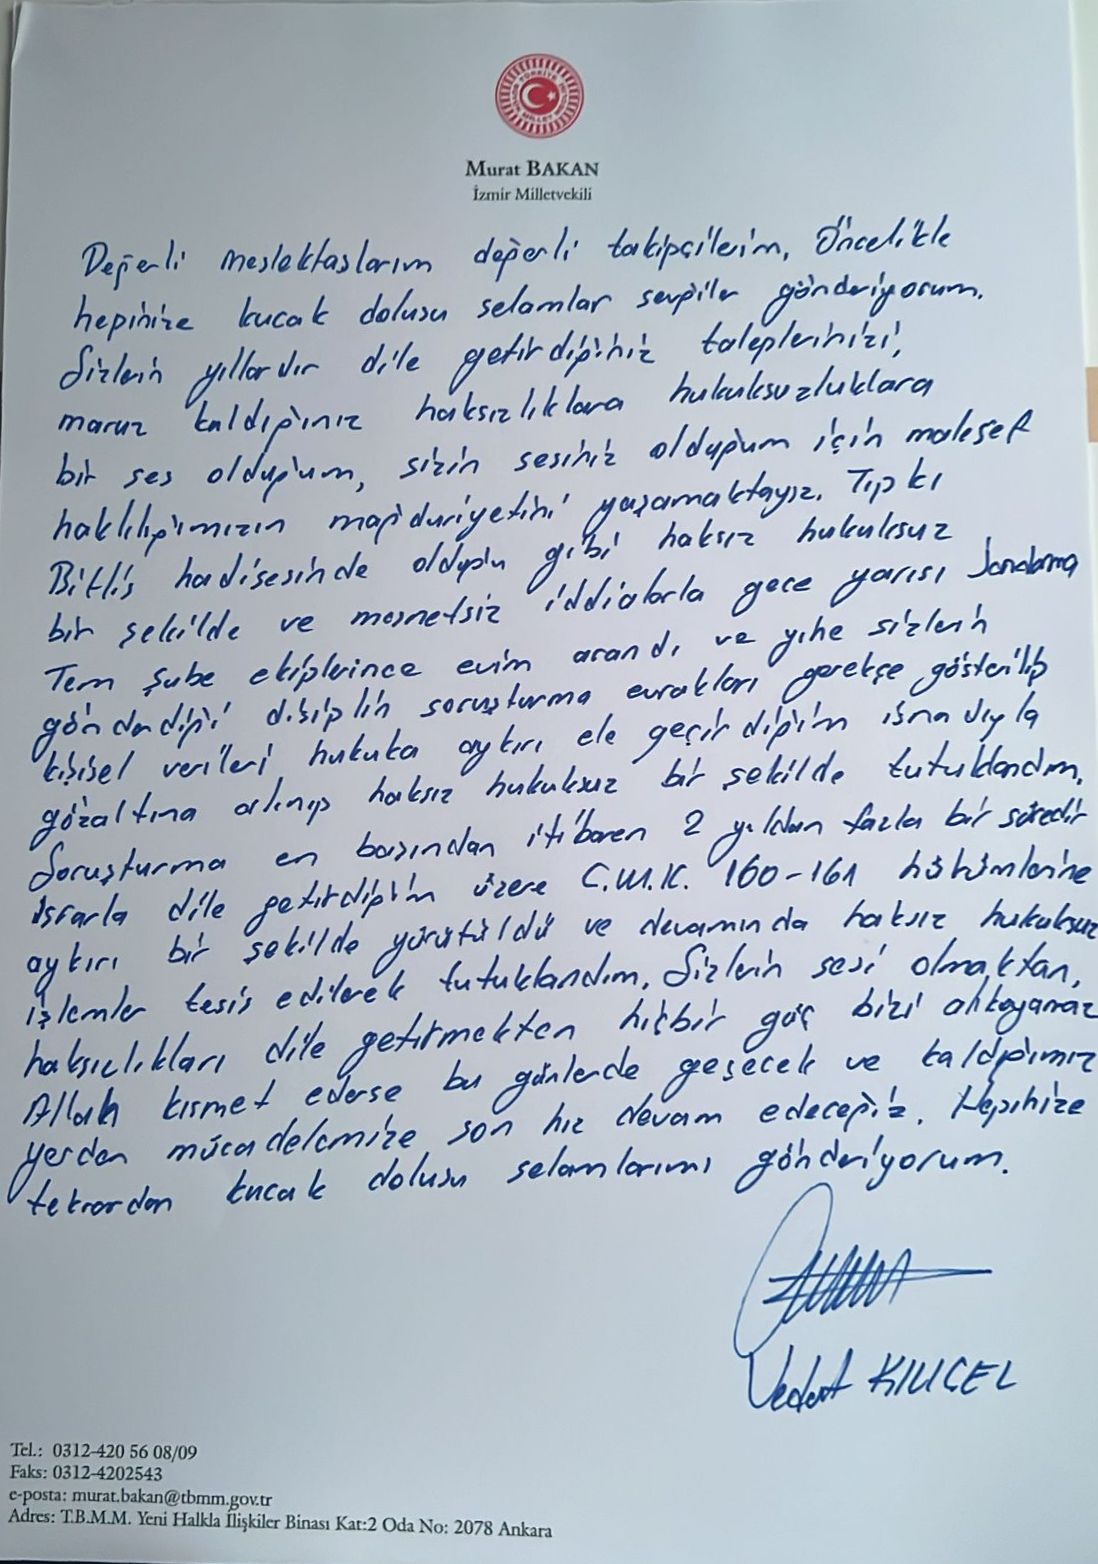 Murat BAKAN
İzmir Milletvekili
Değerli meslektaslarım değerli takipçilerim, Öncelikle
hepinize kucak dolusu selamlar sevgiler gönderiyorum.
Sizlerin yıllardır dile getirdiğiniz taleplerinizi,
maruz kaldığınız haksızlıklara hukuksuzluklara
bir ses olduğum, sizin sesiniz olduğum için malesef
haklılığımızın mağduriyetini yaşamaktayız. Tıpkı
Bitlis hadisesinde olduğu gibi haksız hukuksuz
bir şekilde ve mesnetsiz iddialarla gece yarısı Jandarma
Tem Şube ekiplerince evim arandı ve yine sizlerin
gönderdiği disiplin soruşturma evrakları gerekçe gösterilip
kişisel verileri hukuka aykırı ele geçirdiğim isnadıyla
gözaltına alınıp haksız hukuksuz bir şekilde tutuklandım.
Soruşturma en basından itibaren 2 yıldan fazla bir süredir
ısrarla dile getirdiğim üzere C.M.K. 160-161 hükümlerine
aykırı bir şekilde yürütüldü ve devamında haksız hukuksuz
işlemler tesis edilerek tutuklandım. Sizlerin sesi olmaktan,
haksızlıkları dile getirmekten hiçbir güç bizi alıkoyamaz
Allah kısmet ederse bu günlerde geçecek ve kaldığımız
yerden mücadelemize son hız devam edeceğiz. Hepinize
tekrardan kucak dolusu selamlarımı gönderiyorum.
Vedat KILIÇEL
Tel.: 0312-420 56 08/09
Faks: 0312-4202543
e-posta: murat.bakan@tbmm.gov.tr
Adres: T.B.M.M. Yeni Halkla İlişkiler Binası Kat:2 Oda No: 2078 Ankara